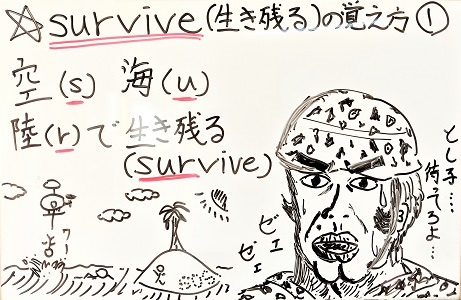 ☆survive(生き残る)の覚え方①
空(s) 海(u)
陸(r)で生き残る
(survive)
とし子…
待ってろよ…
ゼェ
ゼェ
ワー